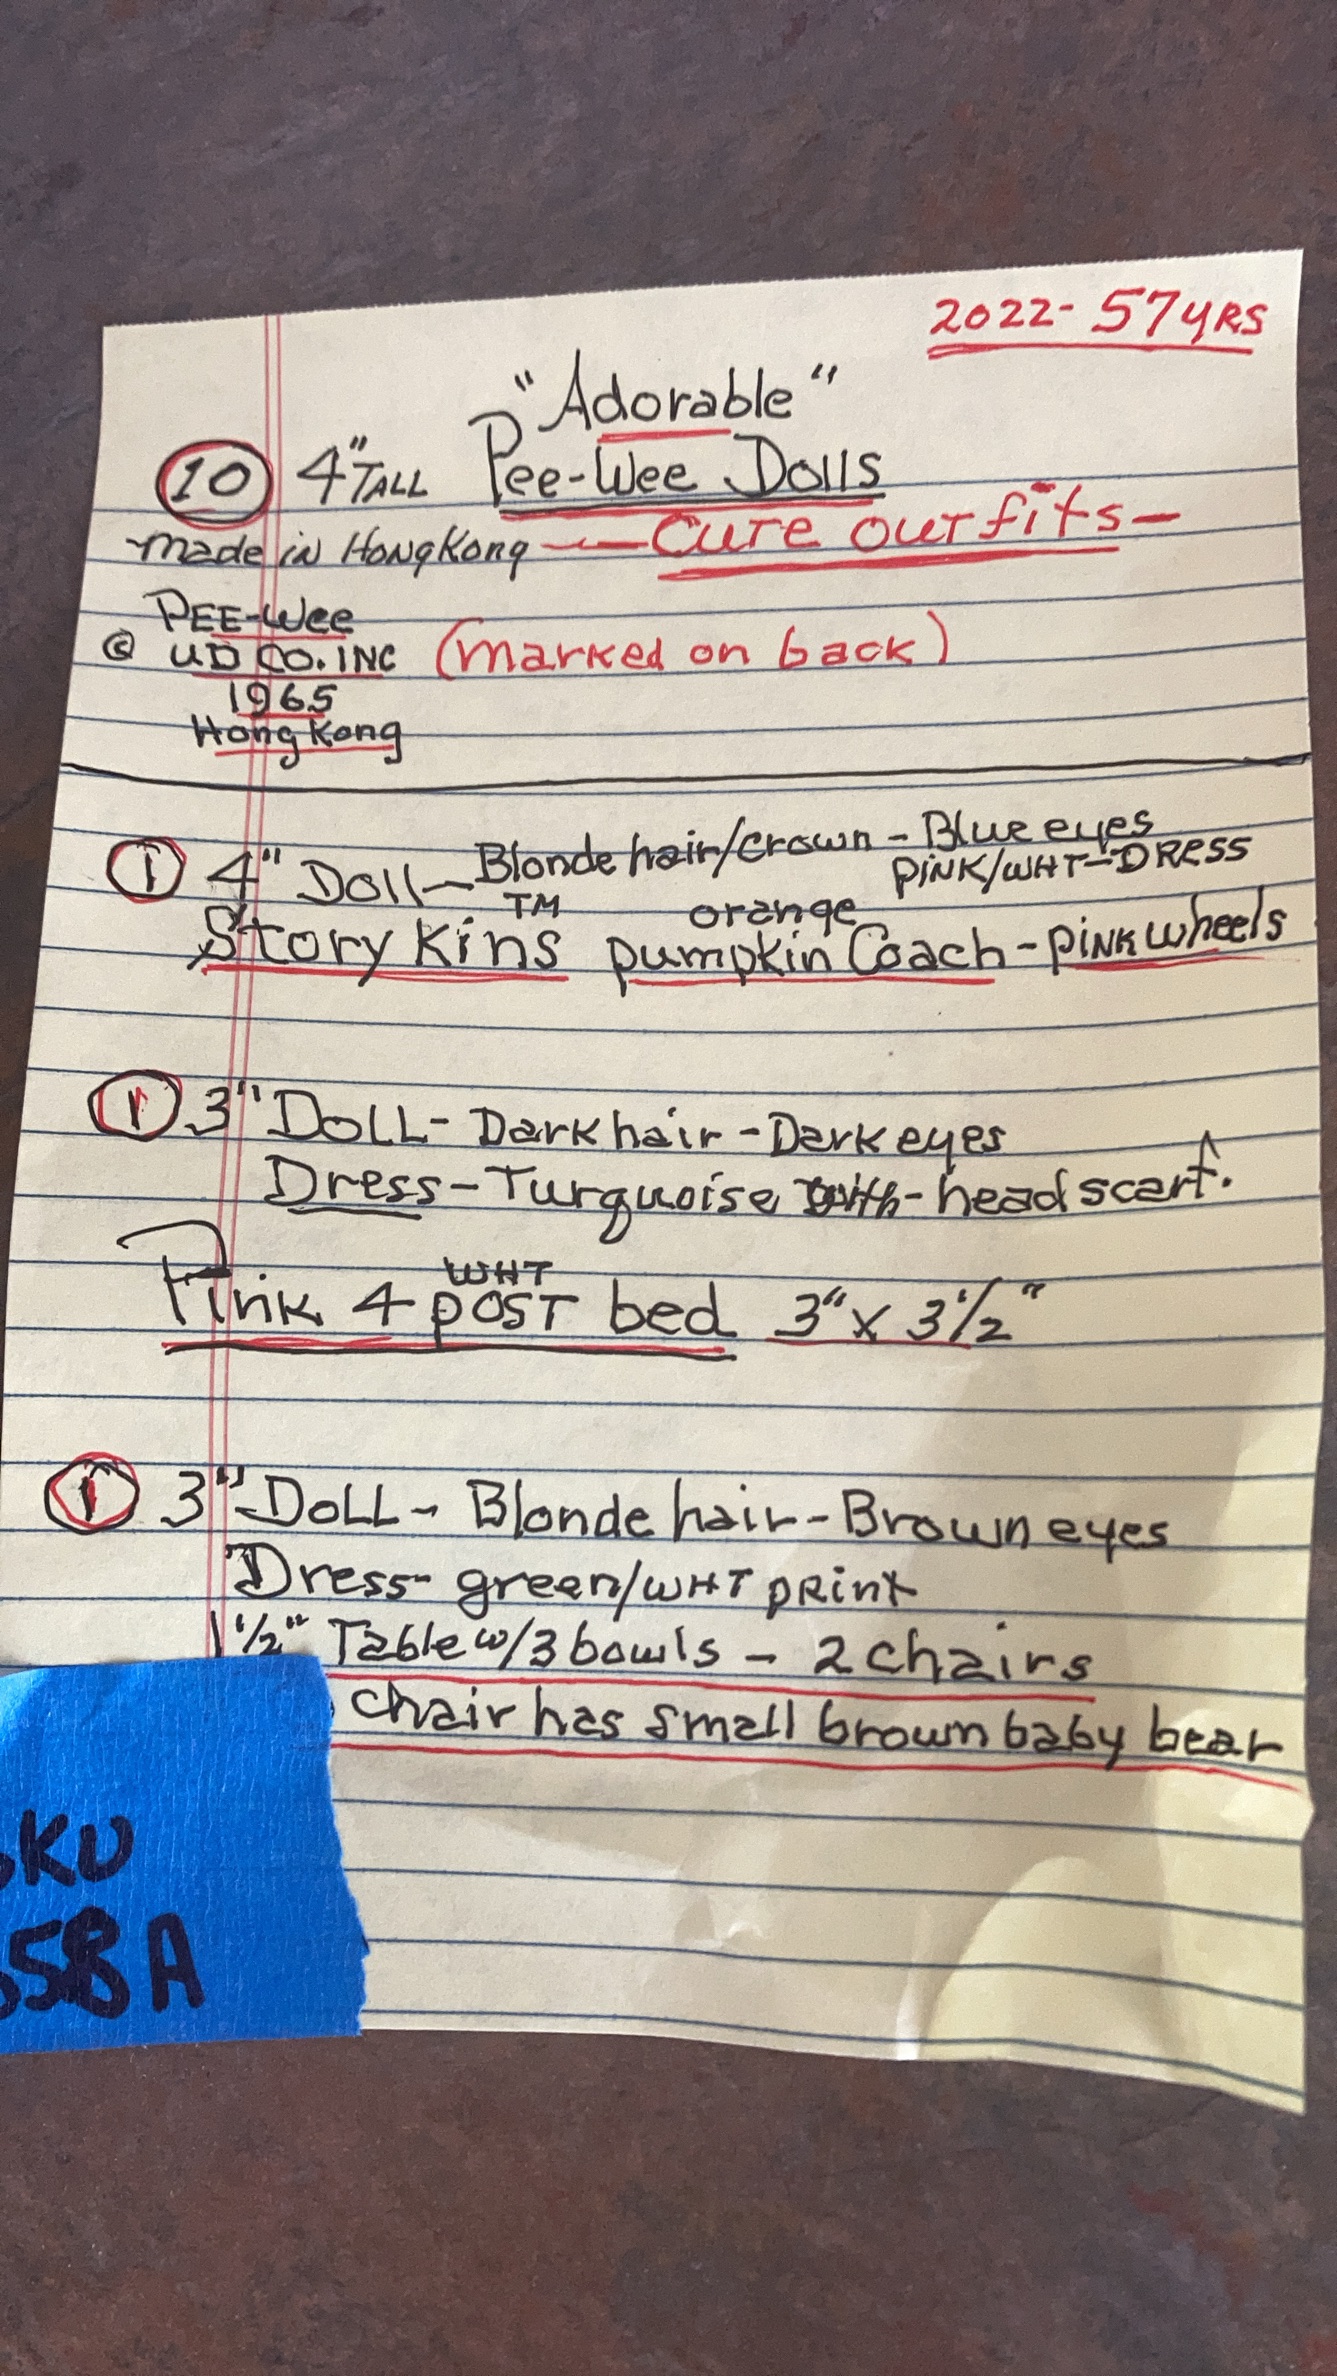 2022- 57YRS
"Adorable"
10 4" TALL Pee-Wee Dolls
made in HongKong — Cute outfits —
PEE-Wee
© UD CO. INC (marked on back)
1965
Hong Kong
1 4" Doll — Blonde hair/crown - Blue eyes
PINK/WHT - DRESS
TM orange
Story Kins pumpkin Coach - PINK wheels
1 3" DOLL - Dark hair - Dark eyes
Dress - Turquoise with - head scarf.
WHT
Pink 4 POST bed 3" x 3 1/2"
1 3" DOLL - Blonde hair - Brown eyes
Dress - green/WHT print
1 1/2" Table w/3 bowls - 2 chairs
chair has small brown baby bear
SKU
58A